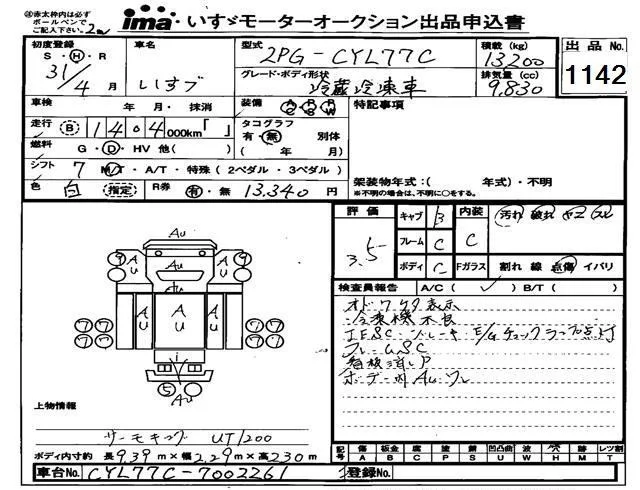 ㊟赤太枠内は必ず
ボールペンで
ご記入下さい。
ima いすゞモーターオークション出品申込書
初度登録 S・H・R 31/4月
車名 いすゞ
型式 2PG-CYL77C
積載(kg) 13,200
出品No. 1142
グレード・ボディ形状 冷蔵冷凍車
排気量(cc) 9,830
車検 年 月・抹消
装備 AC PS PW
特記事項
走行 B 140.4 000km「 」
タコグラフ 有・無 別体
( 年 月)
燃料 G・D・HV 他( )
シフト 7 M/T・A/T・特殊(2ペダル・3ペダル)
架装物年式:( 年式)・不明
※不明の場合は、不明に○をする。
色 白 (指定) R券 有・無 13,340円
評価 3.5
キャブ B 内装 C 汚れ 破れ ヤニ スレ
フレーム C
ボディ C Fガラス 割れ 線 点傷 イバリ
検査員報告 A/C( ✓ ) B/T( )
オドワケタ表示
冷凍機不良
フレームSC
看板消しP
ボデー内AUワレ
AU
9 AU 9
AU AU AU
7 7 7 7
i
5 AU
上物情報
サーモキング UT1200
ボディ内寸約 長9.39m×幅2.29m×高2.30m
記号 傷A 板金B 腐C 塗P 錆S 凹凸曲U 波W 穴H 無M レツ割T
車台No. CYL77C-7002261
登録No.